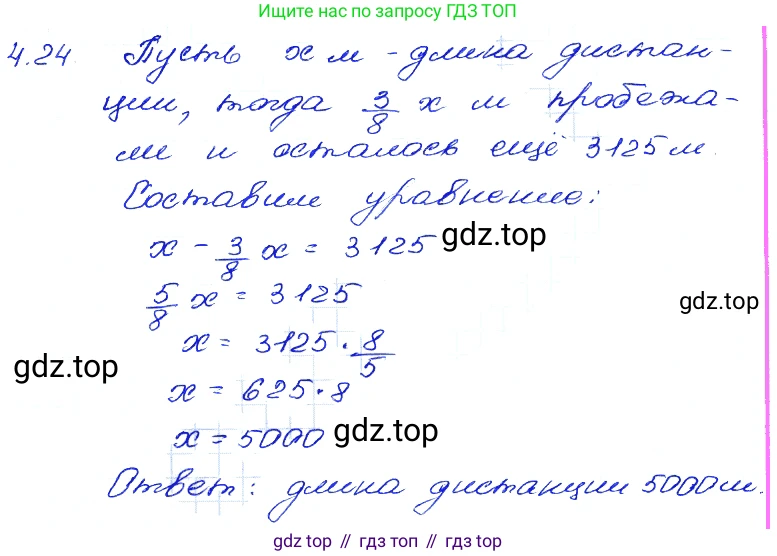 Ищите нас по запросу ГДЗ ТОП
4.24 Пусть x м - длина дистан-
ции, тогда 3/8 x м пробежа-
ли и осталось ещё 3125 м.
Составим уравнение:
x - 3/8 x = 3125 gdz.top
5/8 x = 3125
gdz.top
x = 3125 · 8/5
gdz.top
x = 625 · 8
x = 5000 gdz.top
Ответ: длина дистанции 5000 м.
gdz.top // гдз топ // gdz.top